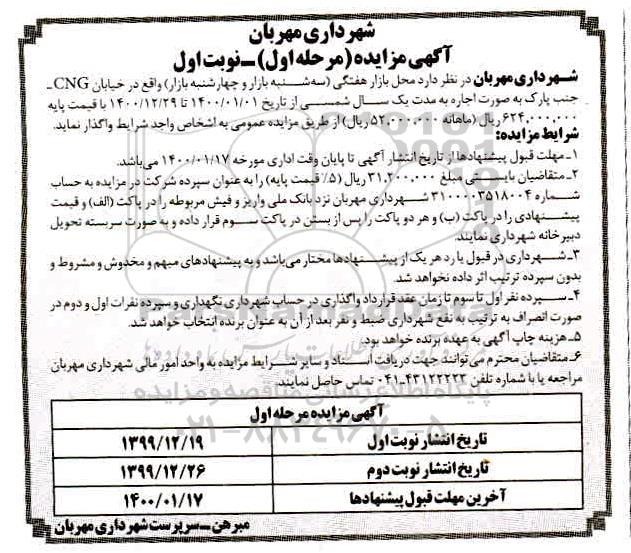 شهرداری مهربان
آگهی مزایده (مرحله اول) ـ نوبت اول
شهرداری مهربان در نظر دارد محل بازار هفتگی (سه‌شنبه بازار و چهارشنبه بازار) واقع در خیابان CNG ـ
جنب پارک به صورت اجاره به مدت یک سال شمسی از تاریخ ۱۴۰۰/۰۱/۰۱ تا ۱۴۰۰/۱۲/۲۹ با قیمت پایه
۶۲۴,۰۰۰,۰۰۰ ریال (ماهانه ۵۲,۰۰۰,۰۰۰ ریال) از طریق مزایده عمومی به اشخاص واجد شرایط واگذار نماید.
شرایط مزایده:
۱ـ مهلت قبول پیشنهادها از تاریخ انتشار آگهی تا پایان وقت اداری مورخه ۱۴۰۰/۰۱/۱۷ می‌باشد.
۲ـ متقاضیان بایستی مبلغ ۳۱,۲۰۰,۰۰۰ ریال (۵٪ قیمت پایه) را به عنوان سپرده شرکت در مزایده به حساب
شماره ۳۱۰۰۰۰۳۵۱۸۰۰۴ شهرداری مهربان نزد بانک ملی واریز و فیش مربوطه را در پاکت (الف) و قیمت
پیشنهادی را در پاکت (ب) و هر دو پاکت را پس از بستن در پاکت سوم قرار داده و به صورت سربسته تحویل
دبیرخانه شهرداری نمایند.
۳ـ شهرداری در قبول یا رد هر یک از پیشنهادها مختار می‌باشد و به پیشنهادهای مبهم و مخدوش و مشروط و
بدون سپرده ترتیب اثر داده نخواهد شد.
۴ـ سپرده نفر اول تا سوم تا زمان عقد قرارداد واگذاری در حساب شهرداری نگهداری و سپرده نفرات اول و دوم در
صورت انصراف به ترتیب به نفع شهرداری ضبط و نفر بعد از آن به عنوان برنده انتخاب خواهد شد.
۵ـ هزینه چاپ آگهی به عهده برنده خواهد بود.
۶ـ متقاضیان محترم می‌توانند جهت دریافت اسناد و سایر شرایط مزایده به واحد امور مالی شهرداری مهربان
مراجعه یا با شماره تلفن ۴۳۱۲۲۲۲۳-۰۴۱ تماس حاصل نمایند.
آگهی مزایده مرحله اول
تاریخ انتشار نوبت اول ۱۳۹۹/۱۲/۱۹
تاریخ انتشار نوبت دوم ۱۳۹۹/۱۲/۲۶
آخرین مهلت قبول پیشنهادها ۱۴۰۰/۰۱/۱۷
میرهن ـ سرپرست شهرداری مهربان
پایگاه اطلاع رسانی مناقصه و مزایده
۰۲۱-۸۸۳۴۹۶۷۰-۵